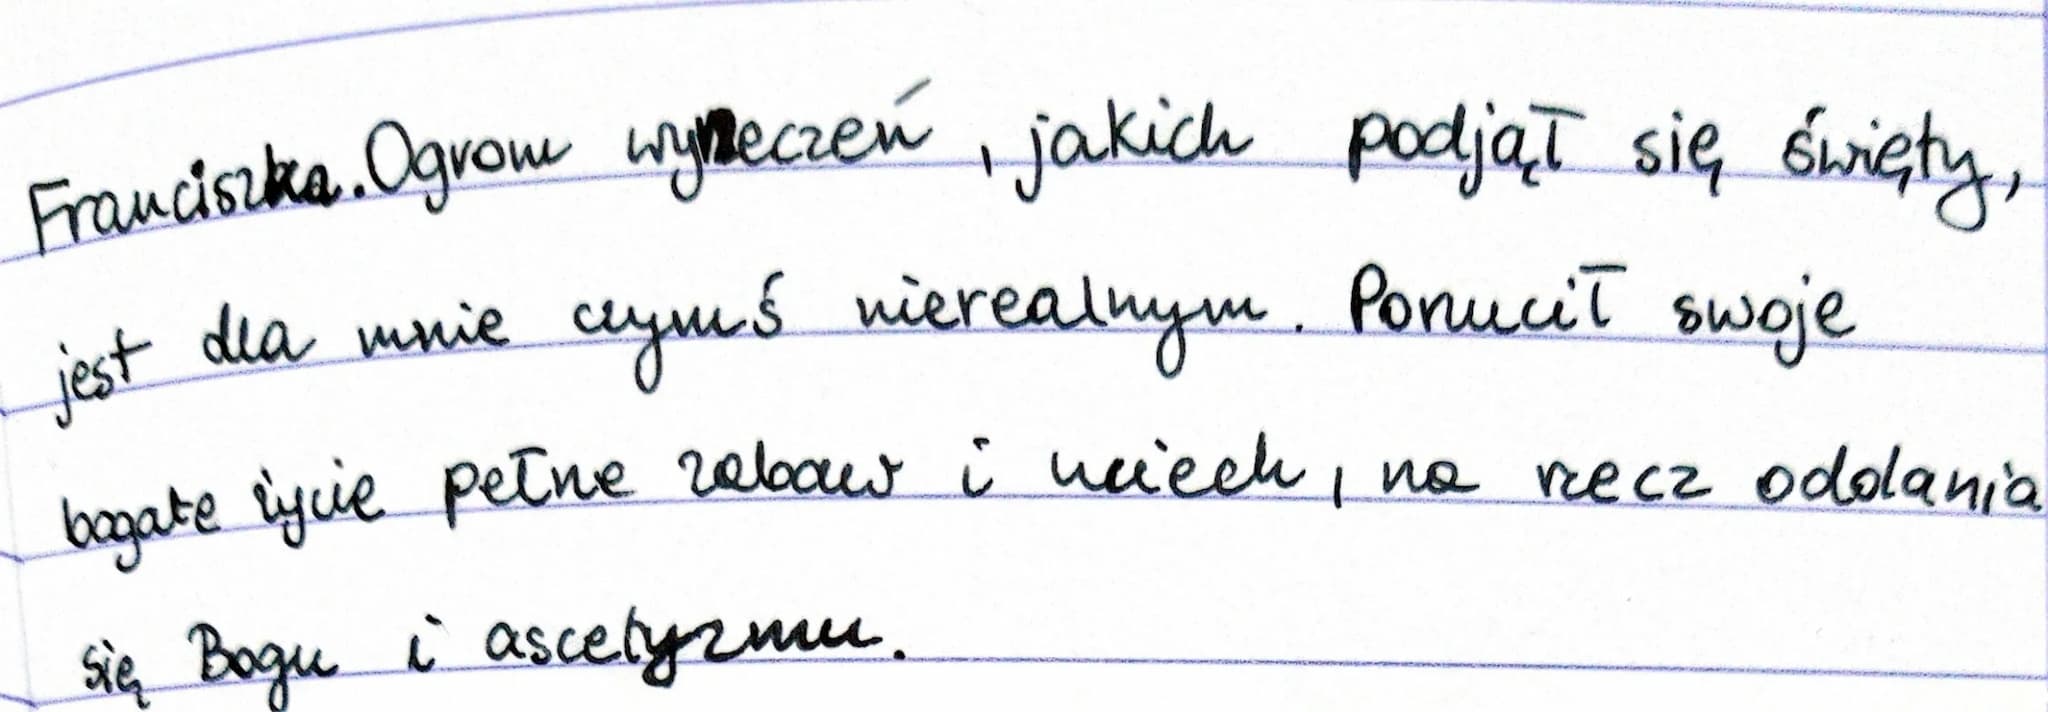 Franciszka. Ogrom wyrzeczeń, jakich podjął się święty,
jest dla mnie czymś nierealnym. Porzucił swoje
bogate życie pełne zabaw i uciech, na rzecz oddania
się Bogu i ascetyzmu.